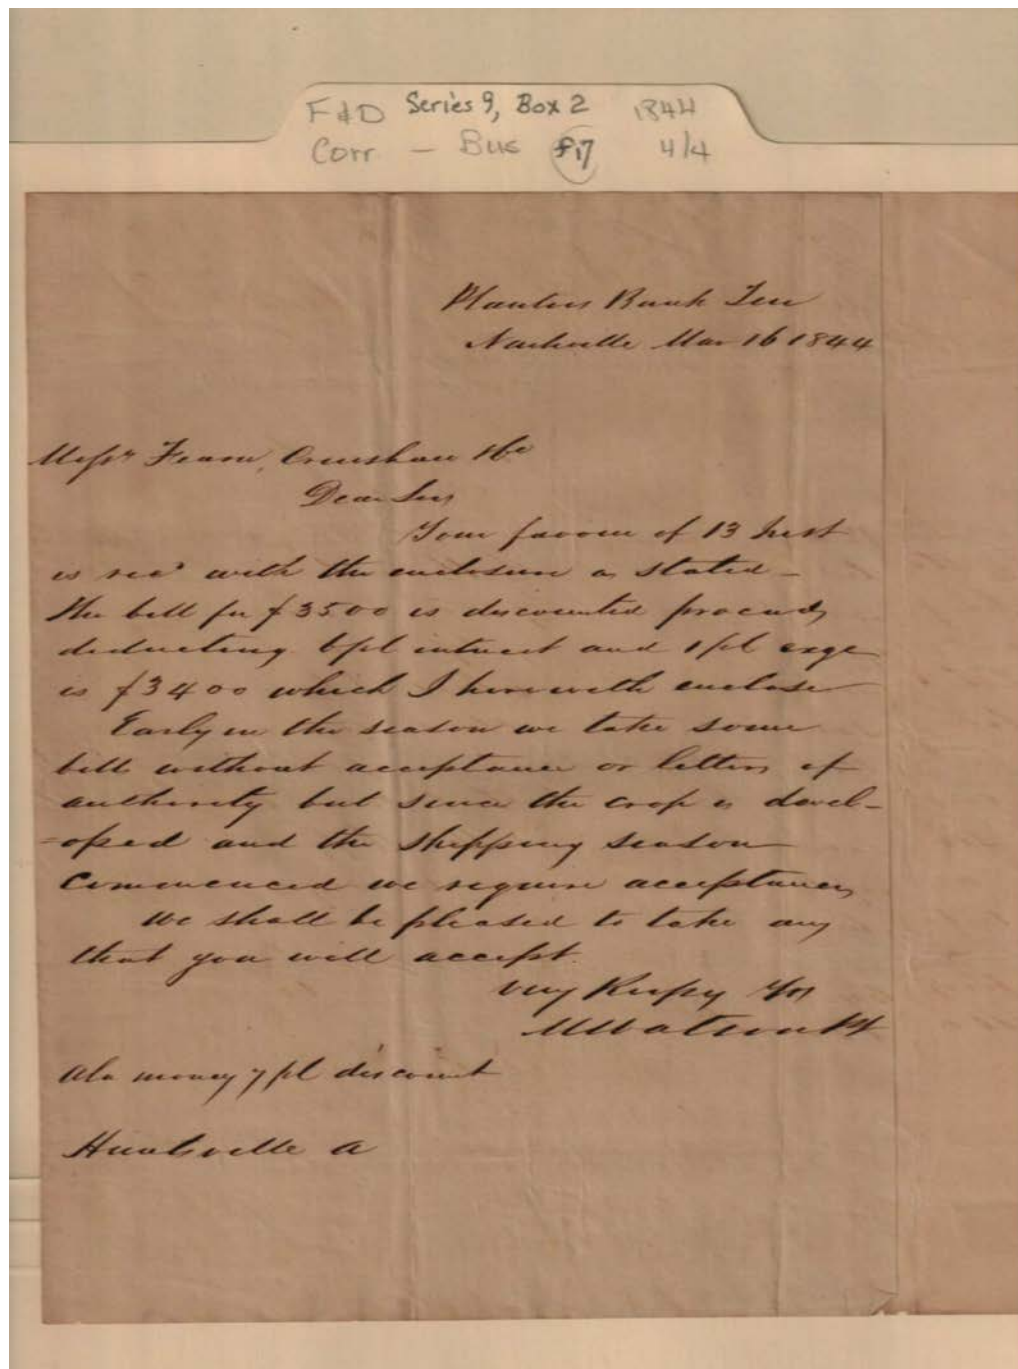 F&D Series 9, Box 2 1844
Corr — Bus f17 4/4
Planters Bank Ten
Nashville Mar 16 1844
Messrs Fearn, Crenshaw &Co
Dear Sirs
Your favour of 13 Inst
is recd with the enclosure as stated –
The bill for $3500 is discounted proceeds
deducting 6pCt interest and 1pCt exge
is $3400 which I herewith enclose
Early in the season we take some
bills without acceptance or letters of
authority but since the crop is devel-
-oped and the shipping season
Commenced we require acceptances
We shall be pleased to take any
that you will accept.
Very Respy Yrs
M Watson Pt
Ala money 7 pCt discount
Huntsville A